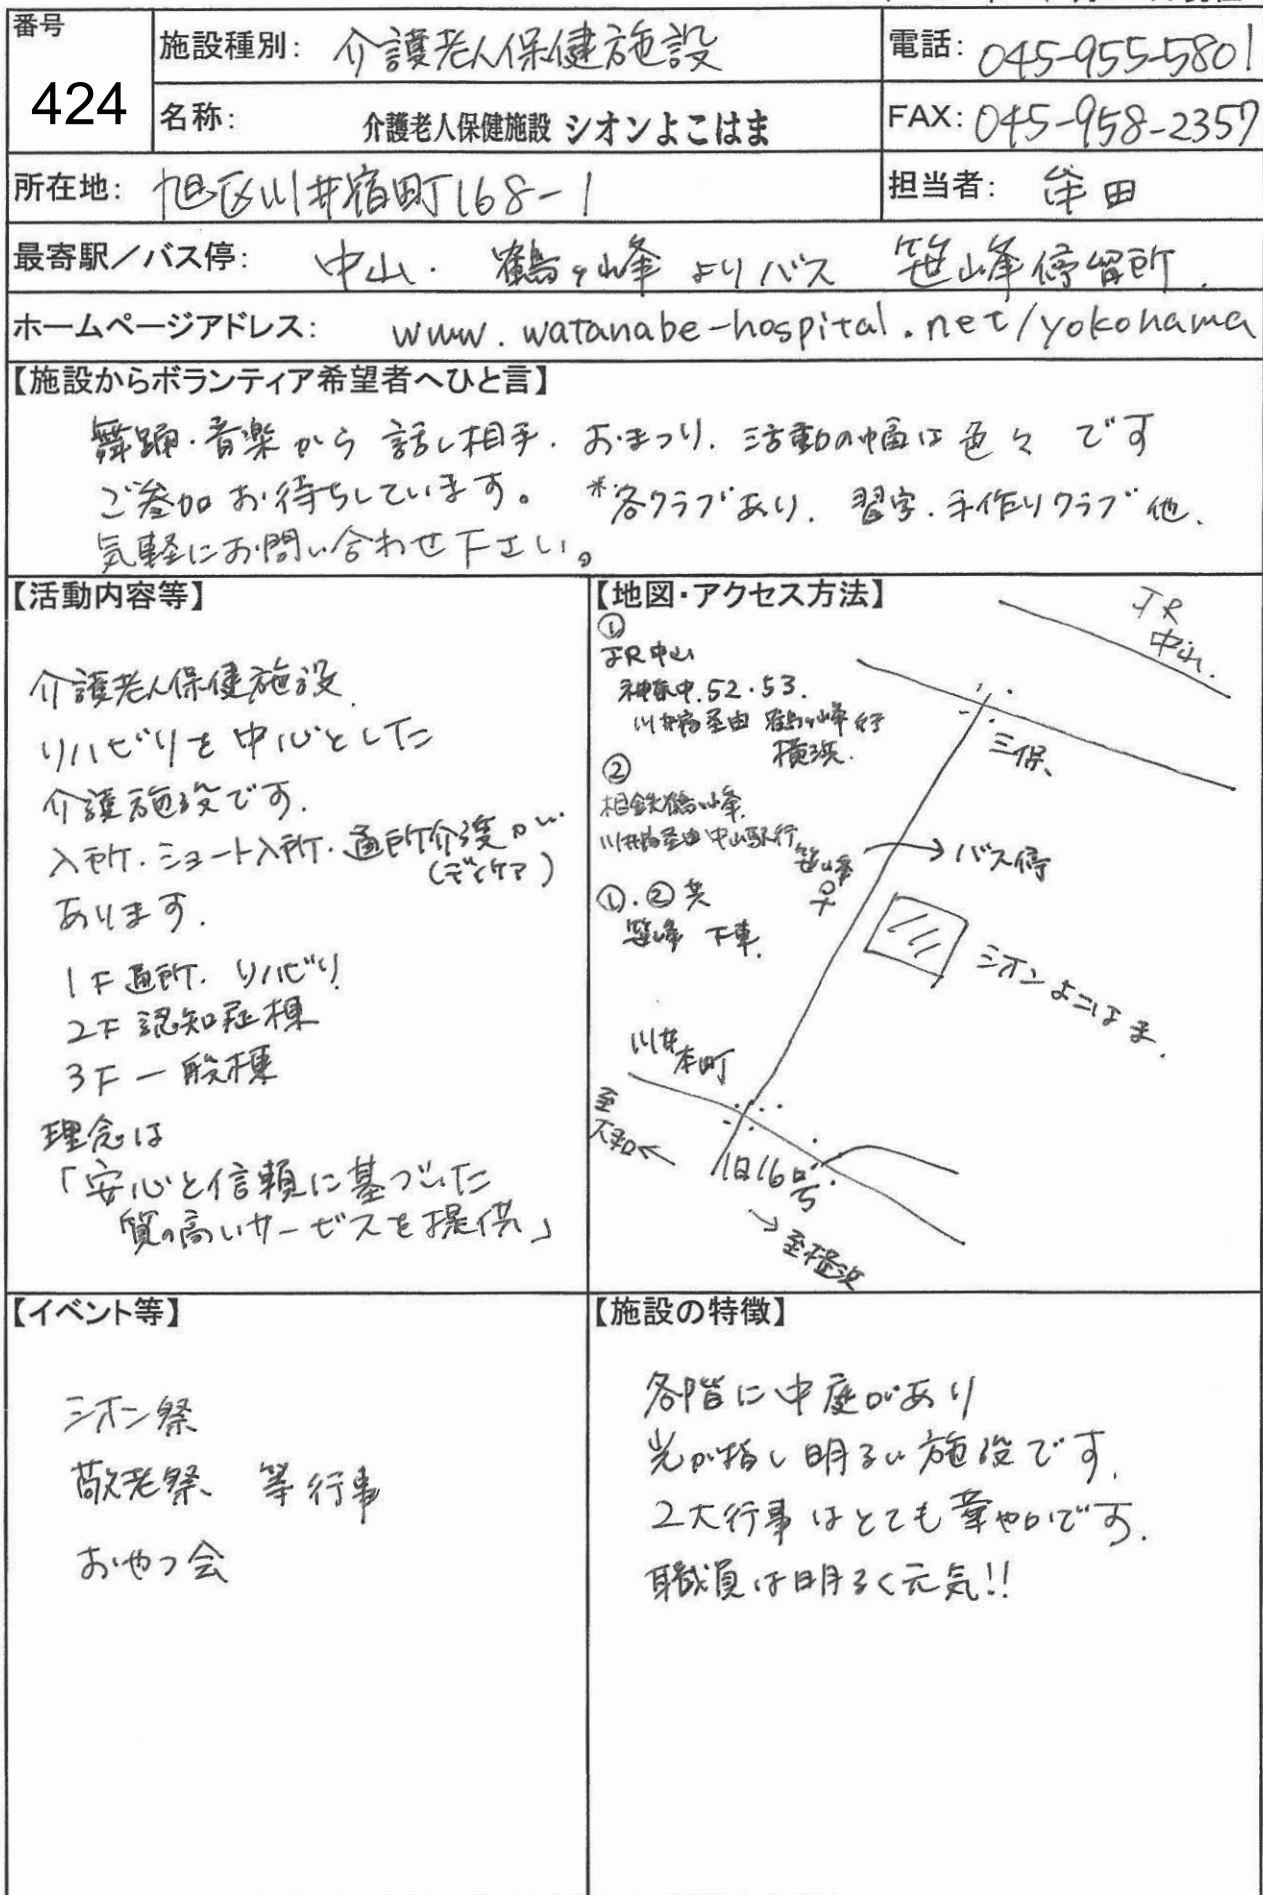 番号
424
施設種別: 介護老人保健施設
電話: 045-955-5801
名称: 介護老人保健施設 シオンよこはま
FAX: 045-958-2357
所在地: 旭区川井宿町168-1
担当者: 田
最寄駅/バス停: 中山. 鶴ヶ峰 よりバス 笹峰停留所.
ホームページアドレス: www.watanabe-hospital.net/yokohama
【施設からボランティア希望者へひと言】
舞踊・音楽から 話し相手. おまつり. 活動の幅は色々です
ご参加お待ちしています。 *各クラブあり. 習字.手作りクラブ他.
気軽にお問い合わせ下さい。
【活動内容等】
介護老人保健施設.
リハビリを中心とした
介護施設です.
入所.ショート入所.通所介護が
(デイケア)
あります.
1F 通所. リハビリ
2F 認知症棟
3F 一般棟
理念は
「安心と信頼に基づいた
質の高いサービスを提供」
【地図・アクセス方法】
①
JR中山
神奈中.52.53.
川井宿経由 鶴ヶ峰行
横浜.
②
相鉄鶴ヶ峰.
川井宿経由中山駅行
①.②共
笹峰 下車.
JR
中山.
三保、
笹峰
→バス停
シオンよこはま.
川井
本町
至
大和←
旧16号
→至横浜
【イベント等】
シオン祭
敬老祭、 等行事
おやつ会
【施設の特徴】
各階に中庭があり
光が指し明るい施設です.
2大行事はとても華やかです.
職員は明るく元気!!